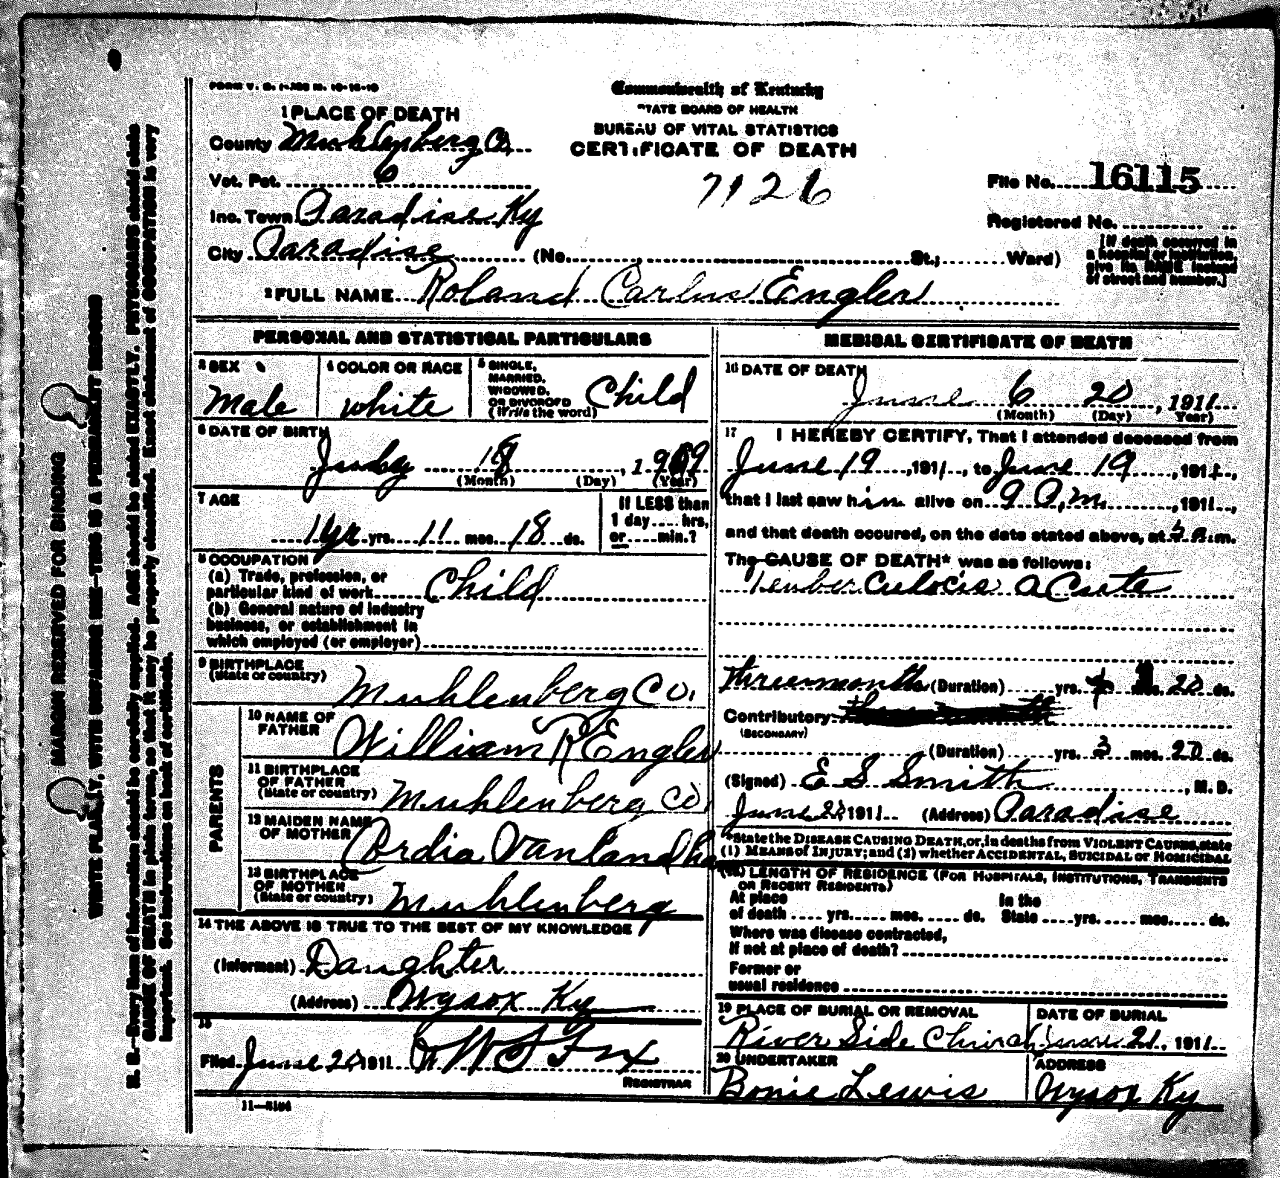 FORM V. S. 1-25M N. 10-14-10
Commonwealth of Kentucky
STATE BOARD OF HEALTH
BUREAU OF VITAL STATISTICS
CERTIFICATE OF DEATH
7126
1 PLACE OF DEATH
County Muhlenberg Co.
Vot. Pct. 6
Inc. Town Paradise Ky
City Paradise (No. St.; Ward)
File No. 16115
Registered No.
[If death occurred in a hospital or institution, give its NAME instead of street and number.]
2 FULL NAME Roland Carlus Engler
PERSONAL AND STATISTICAL PARTICULARS
3 SEX Male
4 COLOR OR RACE white
5 SINGLE, MARRIED, WIDOWED, OR DIVORCED (Write the word) Child
6 DATE OF BIRTH 18, 1909
(Month) (Day) (Year)
7 AGE 1 yr yrs. 11 mos. 18 ds.
If LESS than 1 day .... hrs, or .... min.?
8 OCCUPATION
(a) Trade, profession, or particular kind of work Child
(b) General nature of industry business, or establishment in which employed (or employer)
9 BIRTHPLACE (State or country) Muhlenberg Co.
PARENTS
10 NAME OF FATHER William R Engler
11 BIRTHPLACE OF FATHER (State or country) Muhlenberg Co
12 MAIDEN NAME OF MOTHER Ordia Vanland
13 BIRTHPLACE OF MOTHER (State or country) Muhlenberg
14 THE ABOVE IS TRUE TO THE BEST OF MY KNOWLEDGE
(Informant) Daughter
(Address) Wysox Ky
15
Filed June 20 1911 W S Fox
REGISTRAR
11—5184
MEDICAL CERTIFICATE OF DEATH
16 DATE OF DEATH
June 6 20, 1911
(Month) (Day) (Year)
17 I HEREBY CERTIFY, That I attended deceased from
June 19, 1911, to June 19, 1911,
that I last saw him alive on 9 a.m., 1911,
and that death occured, on the date stated above, at m.
The CAUSE OF DEATH* was as follows:
Teuberculocis acute
three months (Duration) yrs. 20 ds.
Contributory
(SECONDARY)
(Duration) yrs. 3 mos. 20 ds.
(Signed) E S Smith, M.D.
June 20 1911 (Address) Paradise
*State the DISEASE CAUSING DEATH, or, in deaths from VIOLENT CAUSES, state
(1) MEANS of INJURY; and (2) whether ACCIDENTAL, SUICIDAL or HOMICIDAL
18 LENGTH OF RESIDENCE (FOR HOSPITALS, INSTITUTIONS, TRANSIENTS OR RECENT RESIDENTS)
At place of death .... yrs. .... mos. .... ds. In the State .... yrs. .... mos. .... ds.
Where was disease contracted, if not at place of death?
Former or usual residence
19 PLACE OF BURIAL OR REMOVAL River Side Church
DATE OF BURIAL June 21, 1911
20 UNDERTAKER Bonie Lewis
ADDRESS Wysox Ky
MARGIN RESERVED FOR BINDING
WRITE PLAINLY, WITH UNFADING INK—THIS IS A PERMANENT RECORD
N. B.—Every item of information should be carefully supplied. AGE should be stated EXACTLY. PHYSICIANS should state
CAUSE OF DEATH in plain terms, so that it may be properly classified. Exact statement of OCCUPATION is very
important. See instructions on back of certificate.